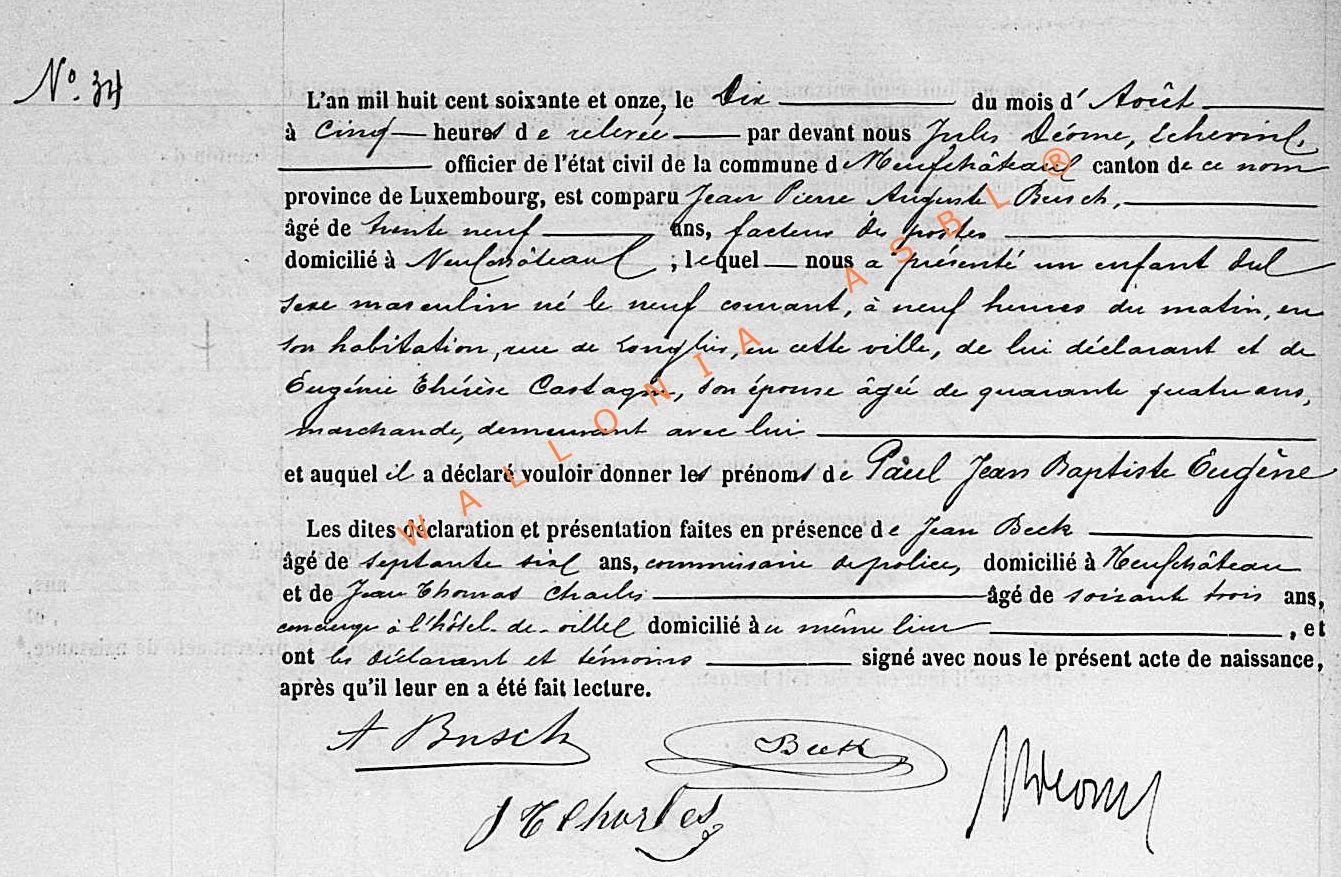 No. 34
L'an mil huit cent soixante et onze, le Dix du mois d' Août
à Cinq heures de relevée par devant nous Jules Déome, Echevin,
officier de l'état civil de la commune de Neufchâteau canton de ce nom
province de Luxembourg, est comparu Jean Pierre Auguste Busch,
âgé de trente neuf ans, facteur des postes
domicilié à Neufchâteau ; lequel nous a présenté un enfant du
sexe masculin né le neuf courant, à neuf heures du matin, en
son habitation, rue de Longlier, en cette ville, de lui déclarant et de
Eugénie Thérèse Castagne, son épouse âgée de quarante quatre ans,
marchande, demeurant avec lui
et auquel il a déclaré vouloir donner les prénoms de Paul Jean Baptiste Eugène
Les dites déclaration et présentation faites en présence de Jean Beck
âgé de septante six ans, commissaire de police, domicilié à Neufchâteau
et de Jean Thomas Charles âgé de soixante trois ans,
concierge à l'hôtel-de-ville domicilié à u même lieu , et
ont les déclarant et témoins signé avec nous le présent acte de naissance,
après qu'il leur en a été fait lecture.
A Busch
Beck
J T Charles
Déome
WALLONIA ASBL ®